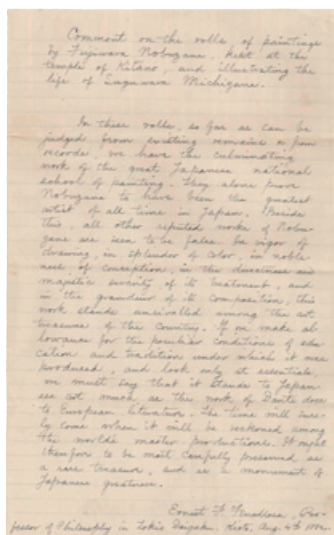 Comment on the rolls of paintings
by Fujiwara Nobuzane, kept at the
temple of Kitano, and illustrating the
life of Sugawara Michizane.
In these rolls, so far as can be
judged from existing remains & from
records, we have the culminating
work of the great Japanese national
school of painting. They alone prove
Nobuzane to have been the greatest
artist of all time in Japan. Beside
this, all other reputed works of Nobu-
zane are seen to be false. In vigor of
drawing, in splendor of color, in noble-
ness of conception, in the directness and
majestic severity of its treatment, and
in the grandeur of its composition, this
work stands unrivalled among the art
treasures of this Country. If we make al-
lowance for the peculiar conditions of edu-
cation and tradition under which it was
produced, and look only at essentials,
we must say that it stands to Japan-
ese art much as the work of Dante does
to European literature. The time will sure-
ly come when it will be reckoned among
the world's master productions. It ought
therefore to be most carefully preserved as
a rare treasure, and as a monument of
Japanese greatness.
Ernest F. Fenollosa, Pro-
fessor of Philosophy in Tokio Daigaku. Kioto, Aug. 4th